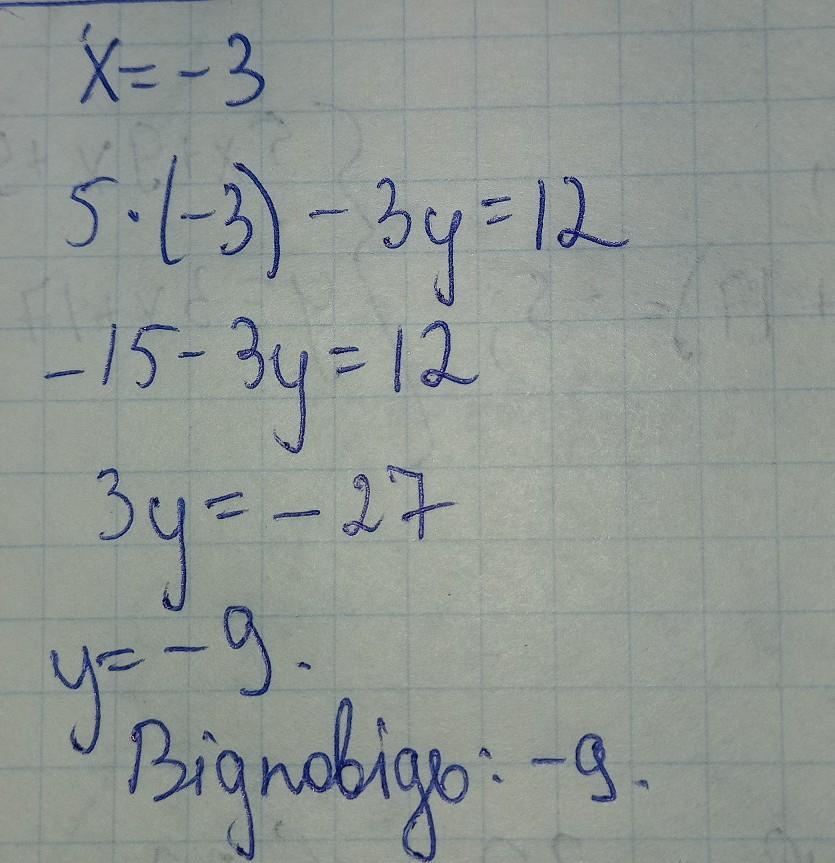 x = -3
5·(-3) - 3y = 12
-15 - 3y = 12
3y = -27
y = -9.
Відповідь: -9.